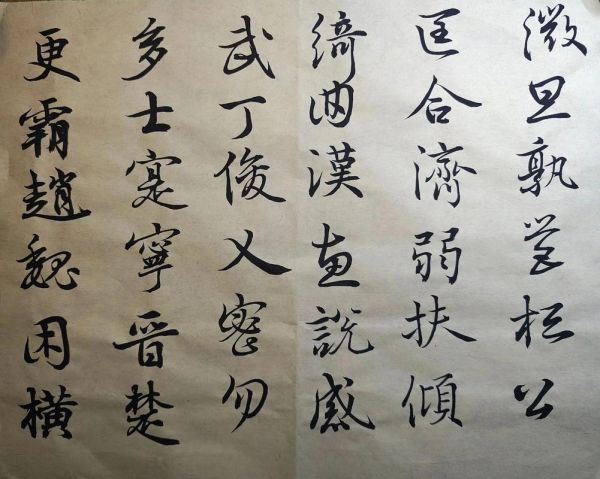 微旦孰营桓公
匡合濟弱扶傾
綺回漢惠說感
武丁俊乂密勿
多士寔寧晋楚
更霸趙魏困橫